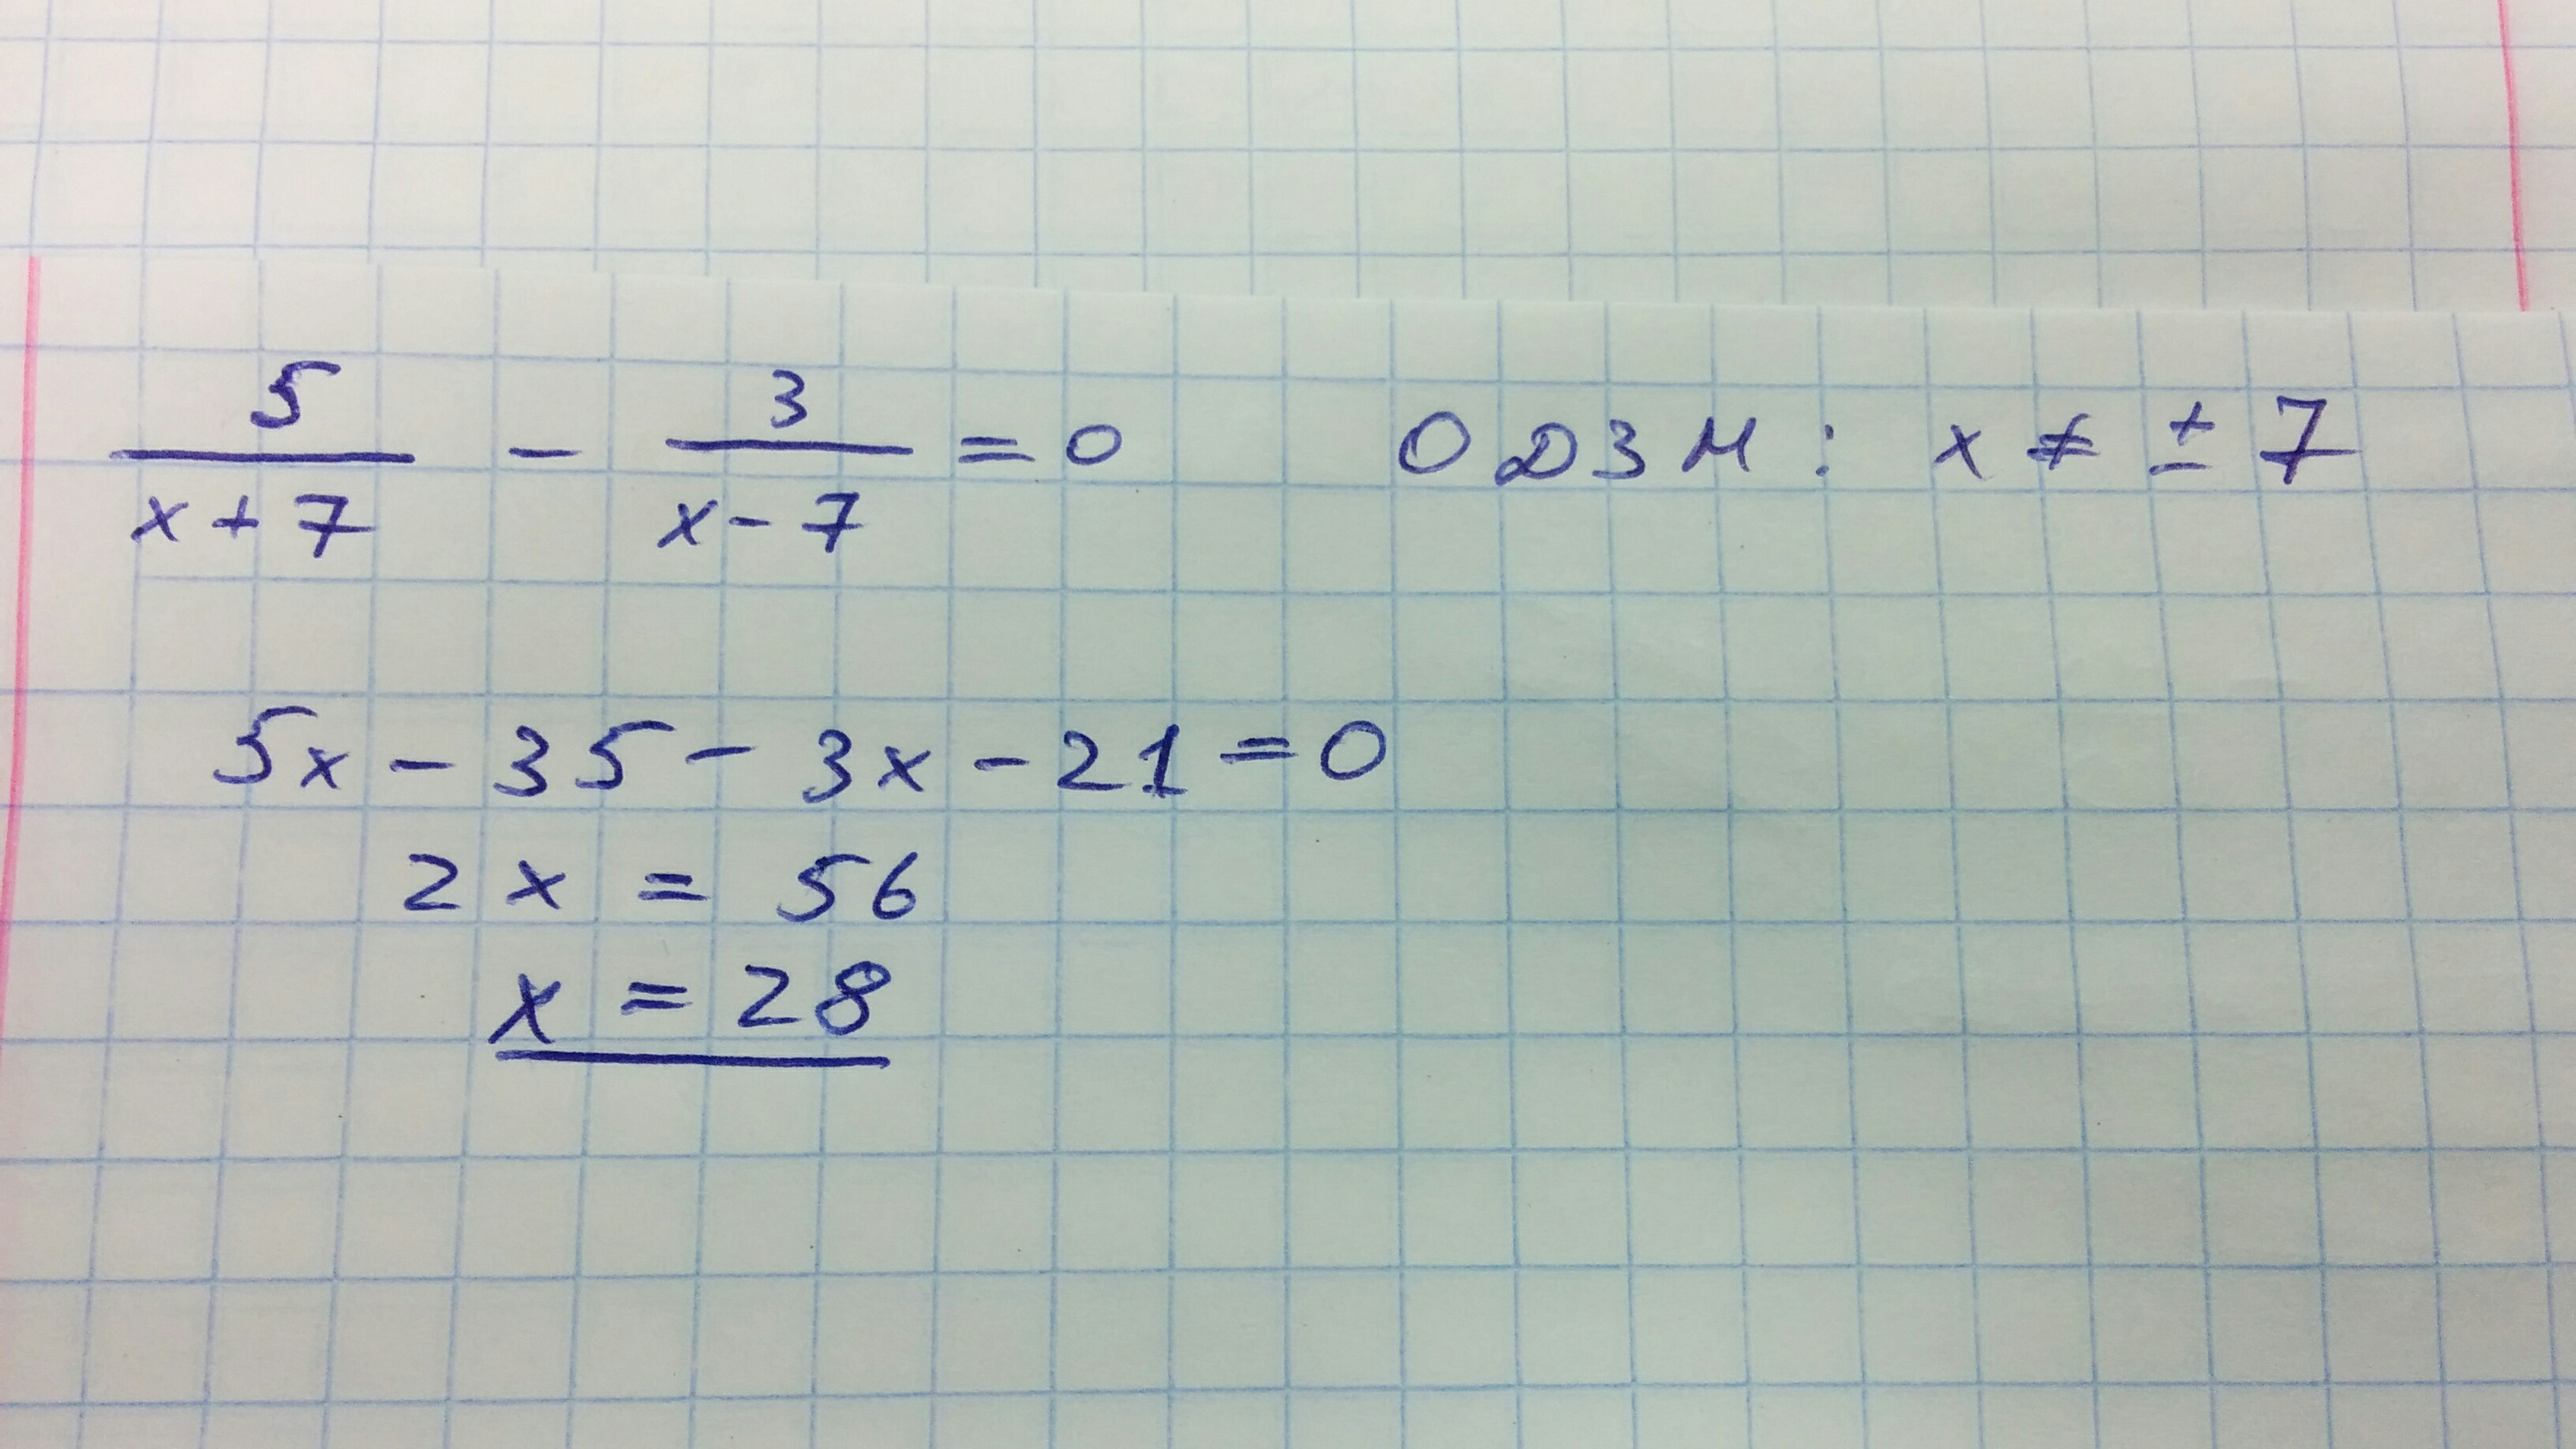 5/(x+7) - 3/(x-7) = 0 ОДЗМ: x ≠ ±7
5x - 35 - 3x - 21 = 0
2x = 56
x = 28